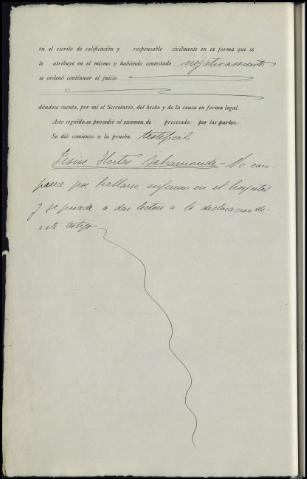 en el escrito de calificación y responsable civilmente en su forma que se
le atribuye en el mismo y habiendo contestado negativamente
se ordenó continuar el juicio
dándose cuenta, por mi el Secretario, del hecho y de la causa en forma legal.
Acto seguido se procedió al examen de procesado por las partes.
Se dió comienzo a la prueba testifical.
Jesus Hortas Bahamonde - No com
parece por hallarse enfermo en el hospital
y se procede a dar lectura a la declaracion de
este testigo